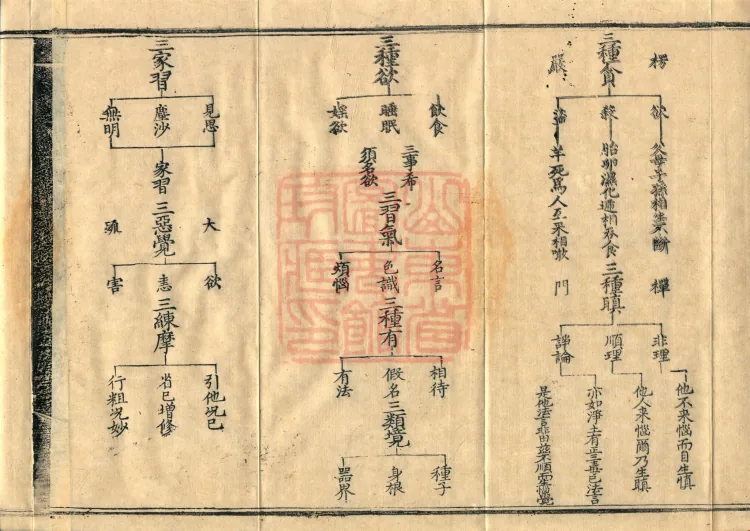 楞
嚴
三種貪
欲
殺
盜
父母子孫相生不斷
胎卵濕化遞相吞食
羊死為人互來相噉
禪
門
三種瞋
非理
順理
諍論
他不來惱而自生慎
他人來惱爾乃生瞋
亦如淨土有
是他法言非
三種欲
飲食
睡眠
婬欲
三事希
須名欲
三習氣
名言
色識
煩惱
三種有
相待
假名
有法
三類境
種子
身根
器界
三家習
見思
塵沙
無明
家習
大
三惡覺
欲
恚
害
三練摩
引他況已
省已增修
行粗況妙
山東省
圖書館
珍藏印